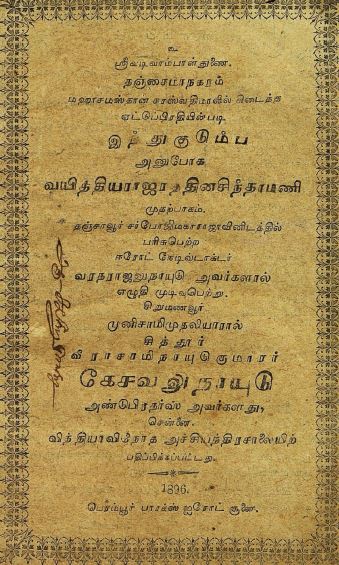 உ
ஸ்ரீவடிவாம்பாள்துணை.
தஞ்சைமாநகரம்
மஹாசமஸ்தான சரஸ்வதிமாலில் கிடைத்த
ஏட்டுப்பிரதியின்படி
இந்துகுடும்ப
அனுபோக
வயித்தியராஜரத்தினசிந்தாமணி
முதற்பாகம்.
தஞ்சாவூர் சர்போஜிமகாராஜாவினிடத்தில்
பரிசுபெற்ற
ஈரோட் கேடிவ்டாக்டர்
வரதராஜுலுநாயுடு அவர்களால்
எழுதி முடிவுபெற்று.
சிறுமணவூர்
முனிசாமிமுதலியாரால்
சித்தூர்
வீராசாமிநாயுடுகுமாரர்
கேசவலுநாயுடு
அண்டுபிரதர்ஸ் அவர்களது,
சென்னை.
விந்தியாவிநோத அச்சியந்திரசாலையிற்
பதிப்பிக்கப்பட்டது.
1896.
பெரம்பூர் பாரக்ஸ் ஐரோட் சூளை.